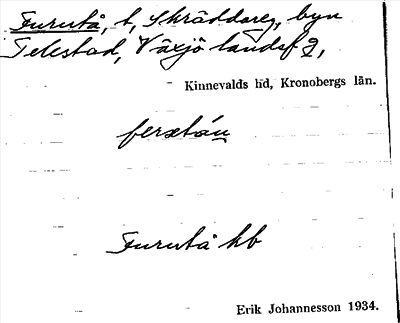 Furutå, t, Skräddareg, byn
Telestad, Växjö landsf 2,
Kinnevalds hd, Kronobergs län.
Furutå hb
Erik Johannesson 1934.